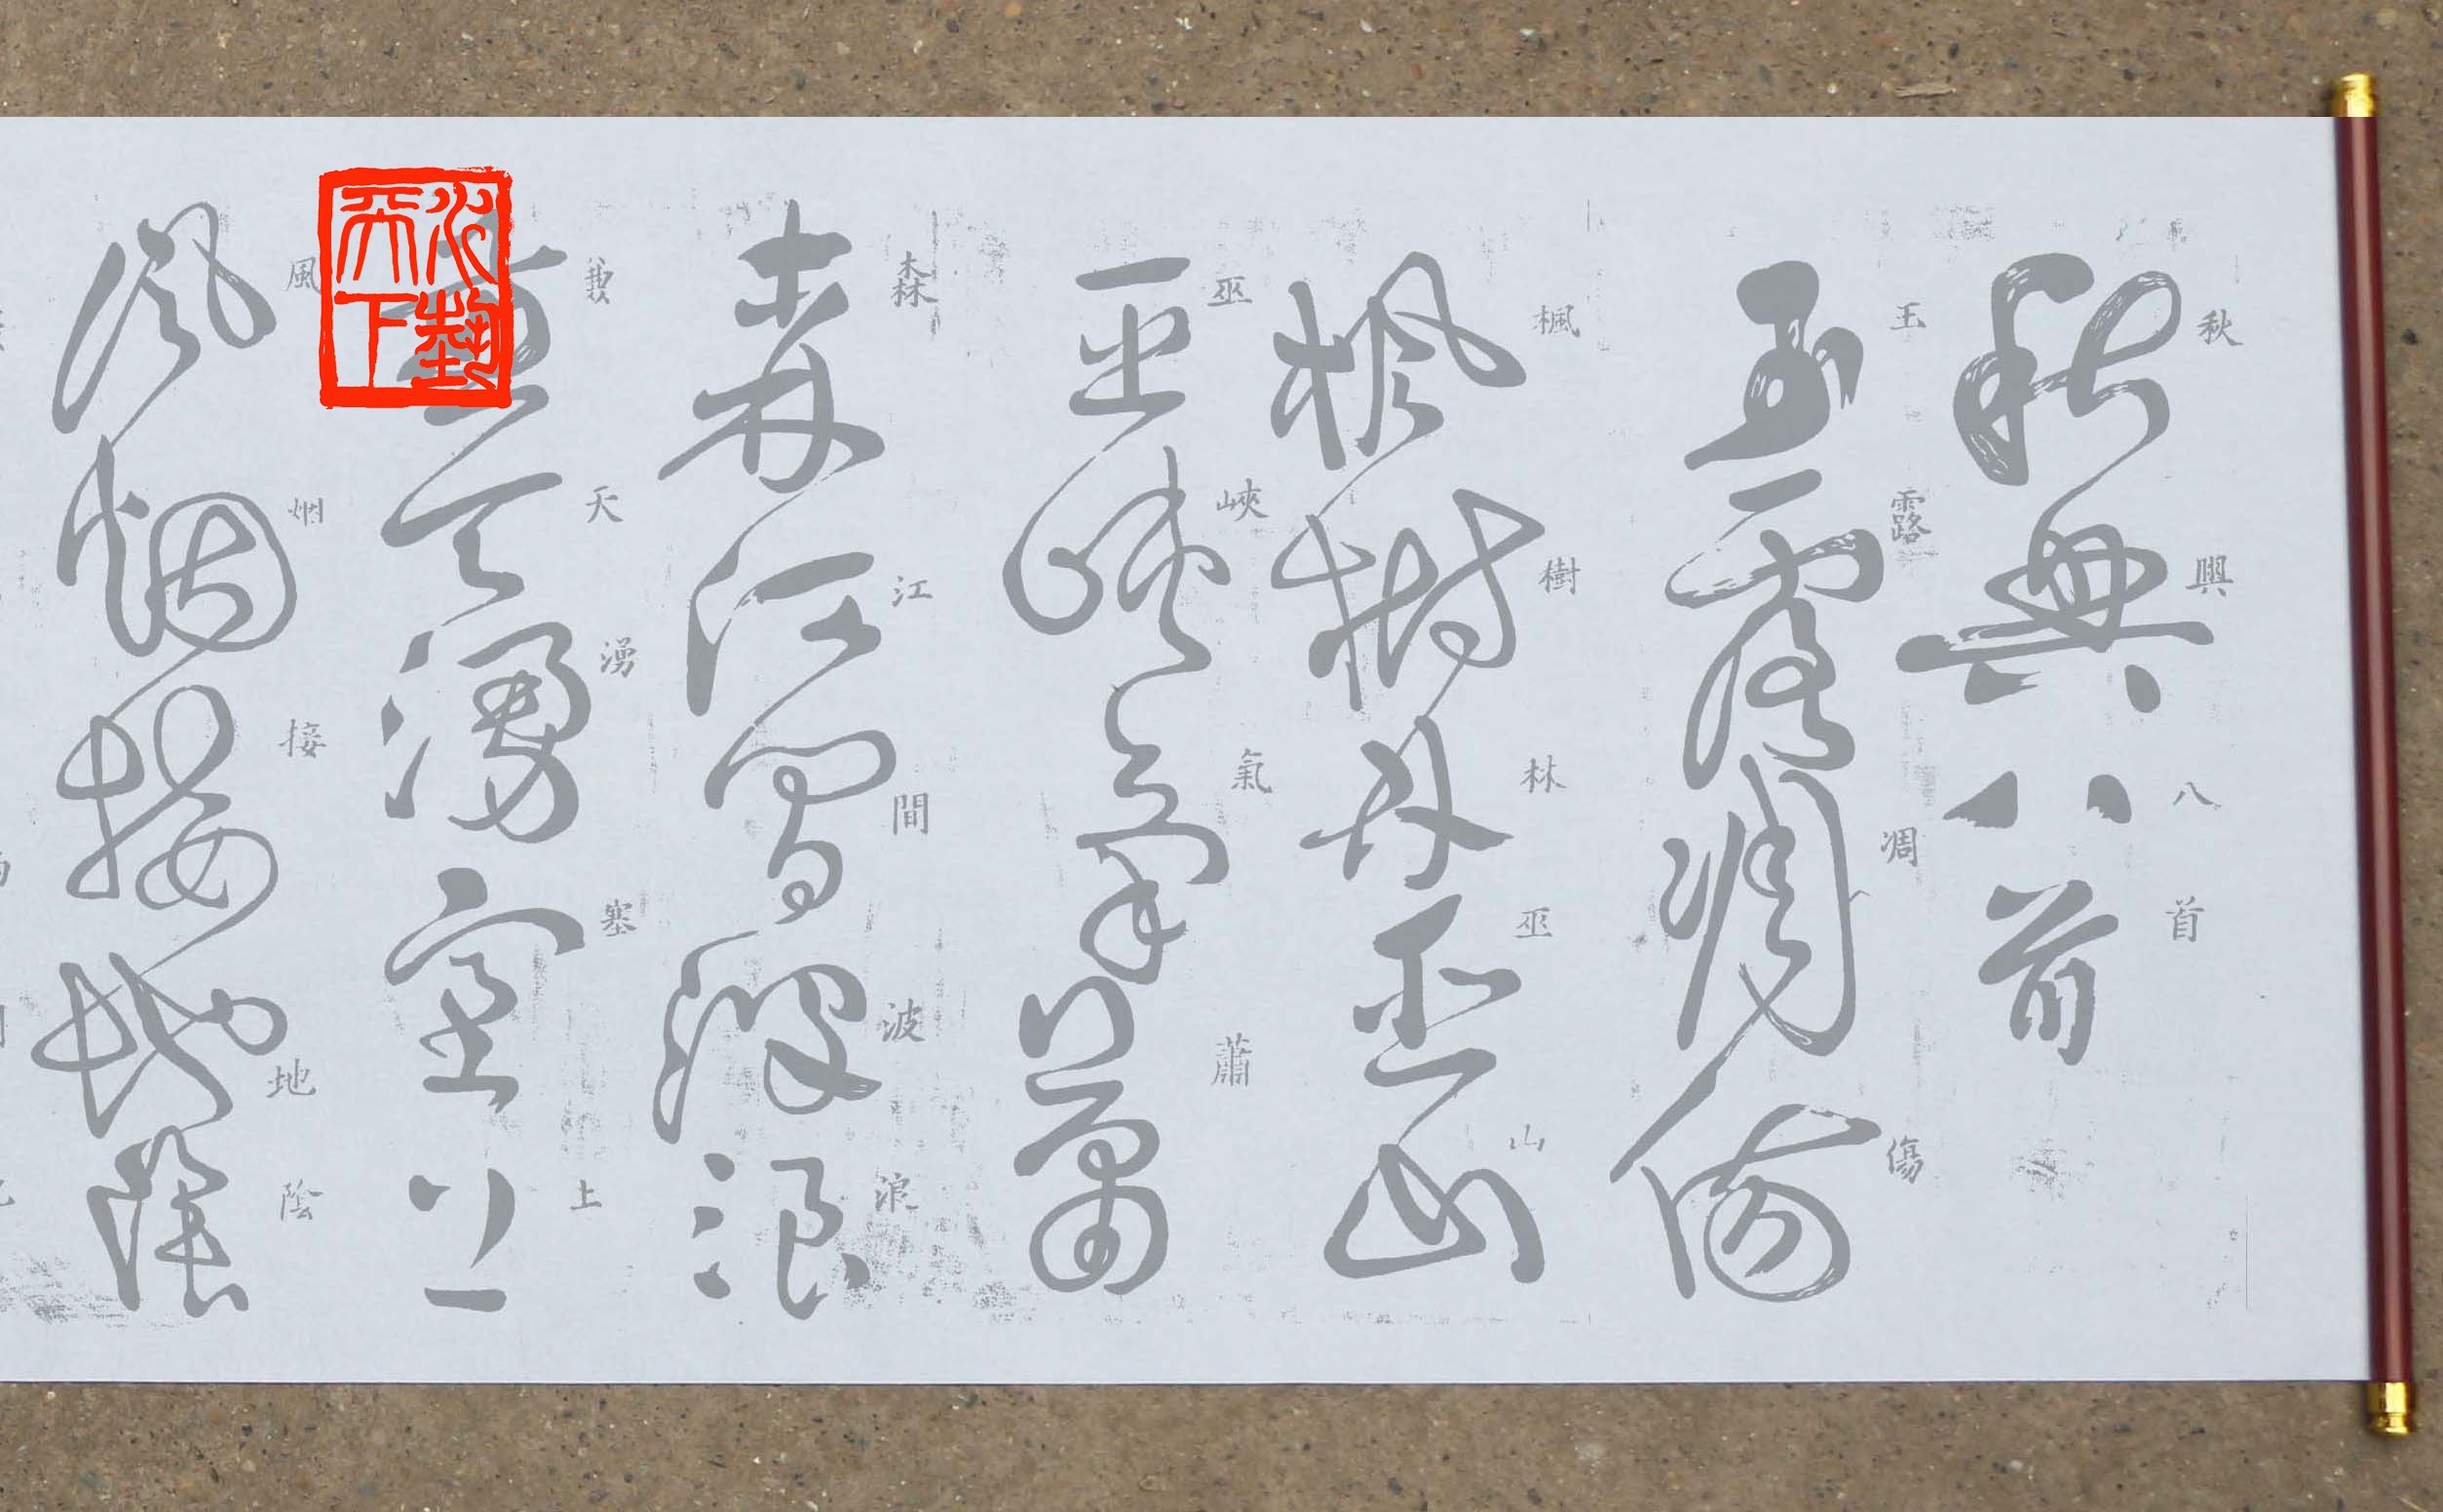 秋興八首
秋興八首
玉露凋傷
玉露凋傷
楓樹林巫山
楓樹林巫山
巫峽氣蕭
巫峽氣蕭
森江間波浪
森江間波浪
天湧塞上
兼天湧塞上
藝天下
風烟接地陰
風烟接地陰